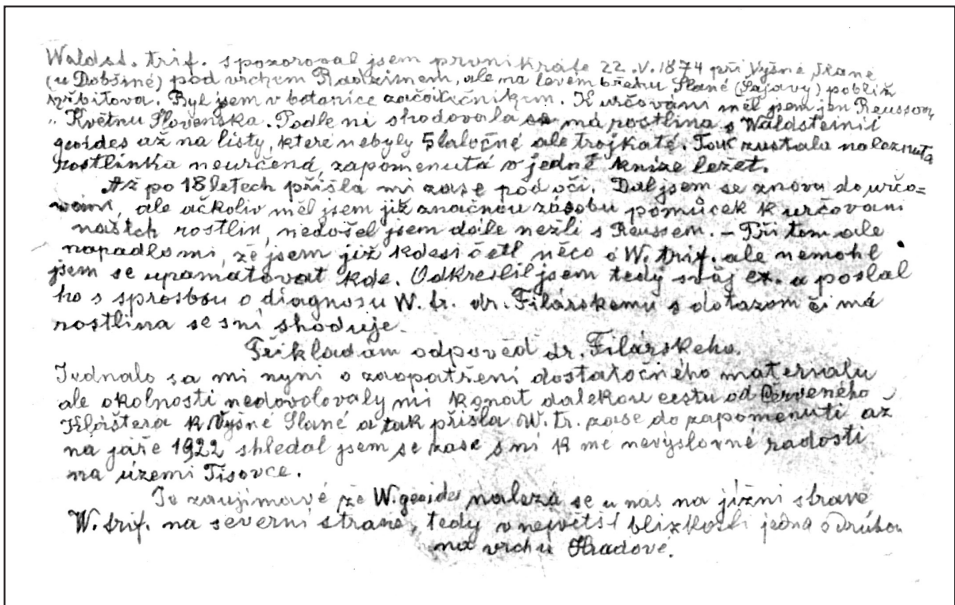 Waldst. trif. spozoroval jsem prvnikráte 22.V.1874 při Vyšné Slane
(u Dobšiné) pod vrchem Radzimem, ale na levém břehu Slané (Sajavy) poblíž
hřbitova. Byl jsem v botanice začátečníkem. K určování měl jsem jen Reussovu
"Květnu Slovenska. Podle ni shodovala se má rostlina s Waldsteinii
geoides až na listy, které nebyly 5laločné ale trojkaté. Tak zustala naleznuta
rostlinka neurčená, zapomenutá v jedné knize ležet.
Až po 18 letech přišla mi zase pod oči. Dal jsem se znovu do určo=
vání, ale ačkoliv měl jsem již značnou zásobu pomůcek k určovani
našich rostlin, nedošel jsem dále nežli s Reussem. – Při tom ale
napadlo mi, že jsem již kdesi četl něco o W. trif. ale nemohl
jsem se upamatovat kde. Odkreslil jsem tedy svůj ex. a poslal
ho s sprosbou o diagnosu W. tr. dr. Filárskemu s dotazom či má
rostlina se sní shoduje.
Přikladám odpověd dr. Filárskeho.
Jednalo sa mi nyni o zaopatření dostatočného materialu
ale okolnosti nedovolovaly mi konat dalekou cestu od Červeného
Kláštera k Vyšné Slané a tak přišla W. tr. zase do zapomenutí až
na jaře 1922 shledal jsem se zase s ní k mé nevýslovné radosti
na území Tisovce.
Je zaujimavé že W. geoides naleza se u nas na jížní straně
W. trif. na severní straně, tedy v největší blízkosti jedna o druhou
na vrchu Hradové.